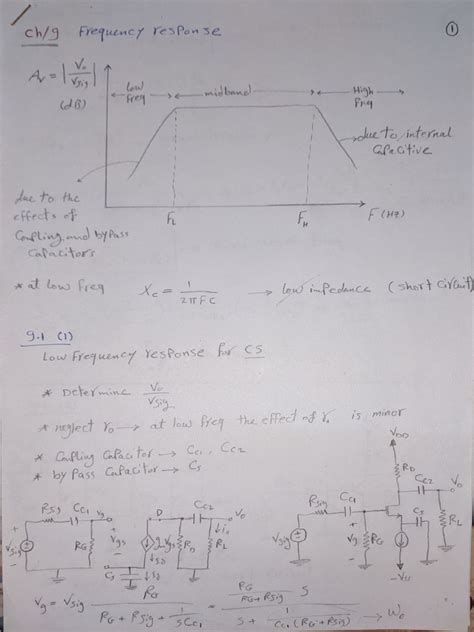 ch/9 Frequency response
①
Av = |Vo/Vsig|
(dB)
low freq
midband
High freq
due to internal
Capacitive
due to the
effects of
Coupling and bypass
Capacitors
FL
FH
F(Hz)
* at low freq Xc = 1/2πFC → low impedance (short circuit)
9.1 (1)
Low frequency response for CS
* Determine Vo/Vsig
* neglect ro → at low freq the effect of ro is minor
* Coupling Capacitor → Cc1, Cc2
* by pass Capacitor → Cs
VDD
RD
Cc2
Vo
RL
Rsig
Cc1
Vsig
Vg
RG
Cs
-VSS
Rsig
Cc1
Vg
D
Cc2
Vo
Vsig
RG
Vgs
RD
RL
Cs
Vg = Vsig RG / (RG + Rsig + 1/sCc1) = (RG/(RG+Rsig) S) / (S + 1/(Cc1(RG+Rsig))) → Wo